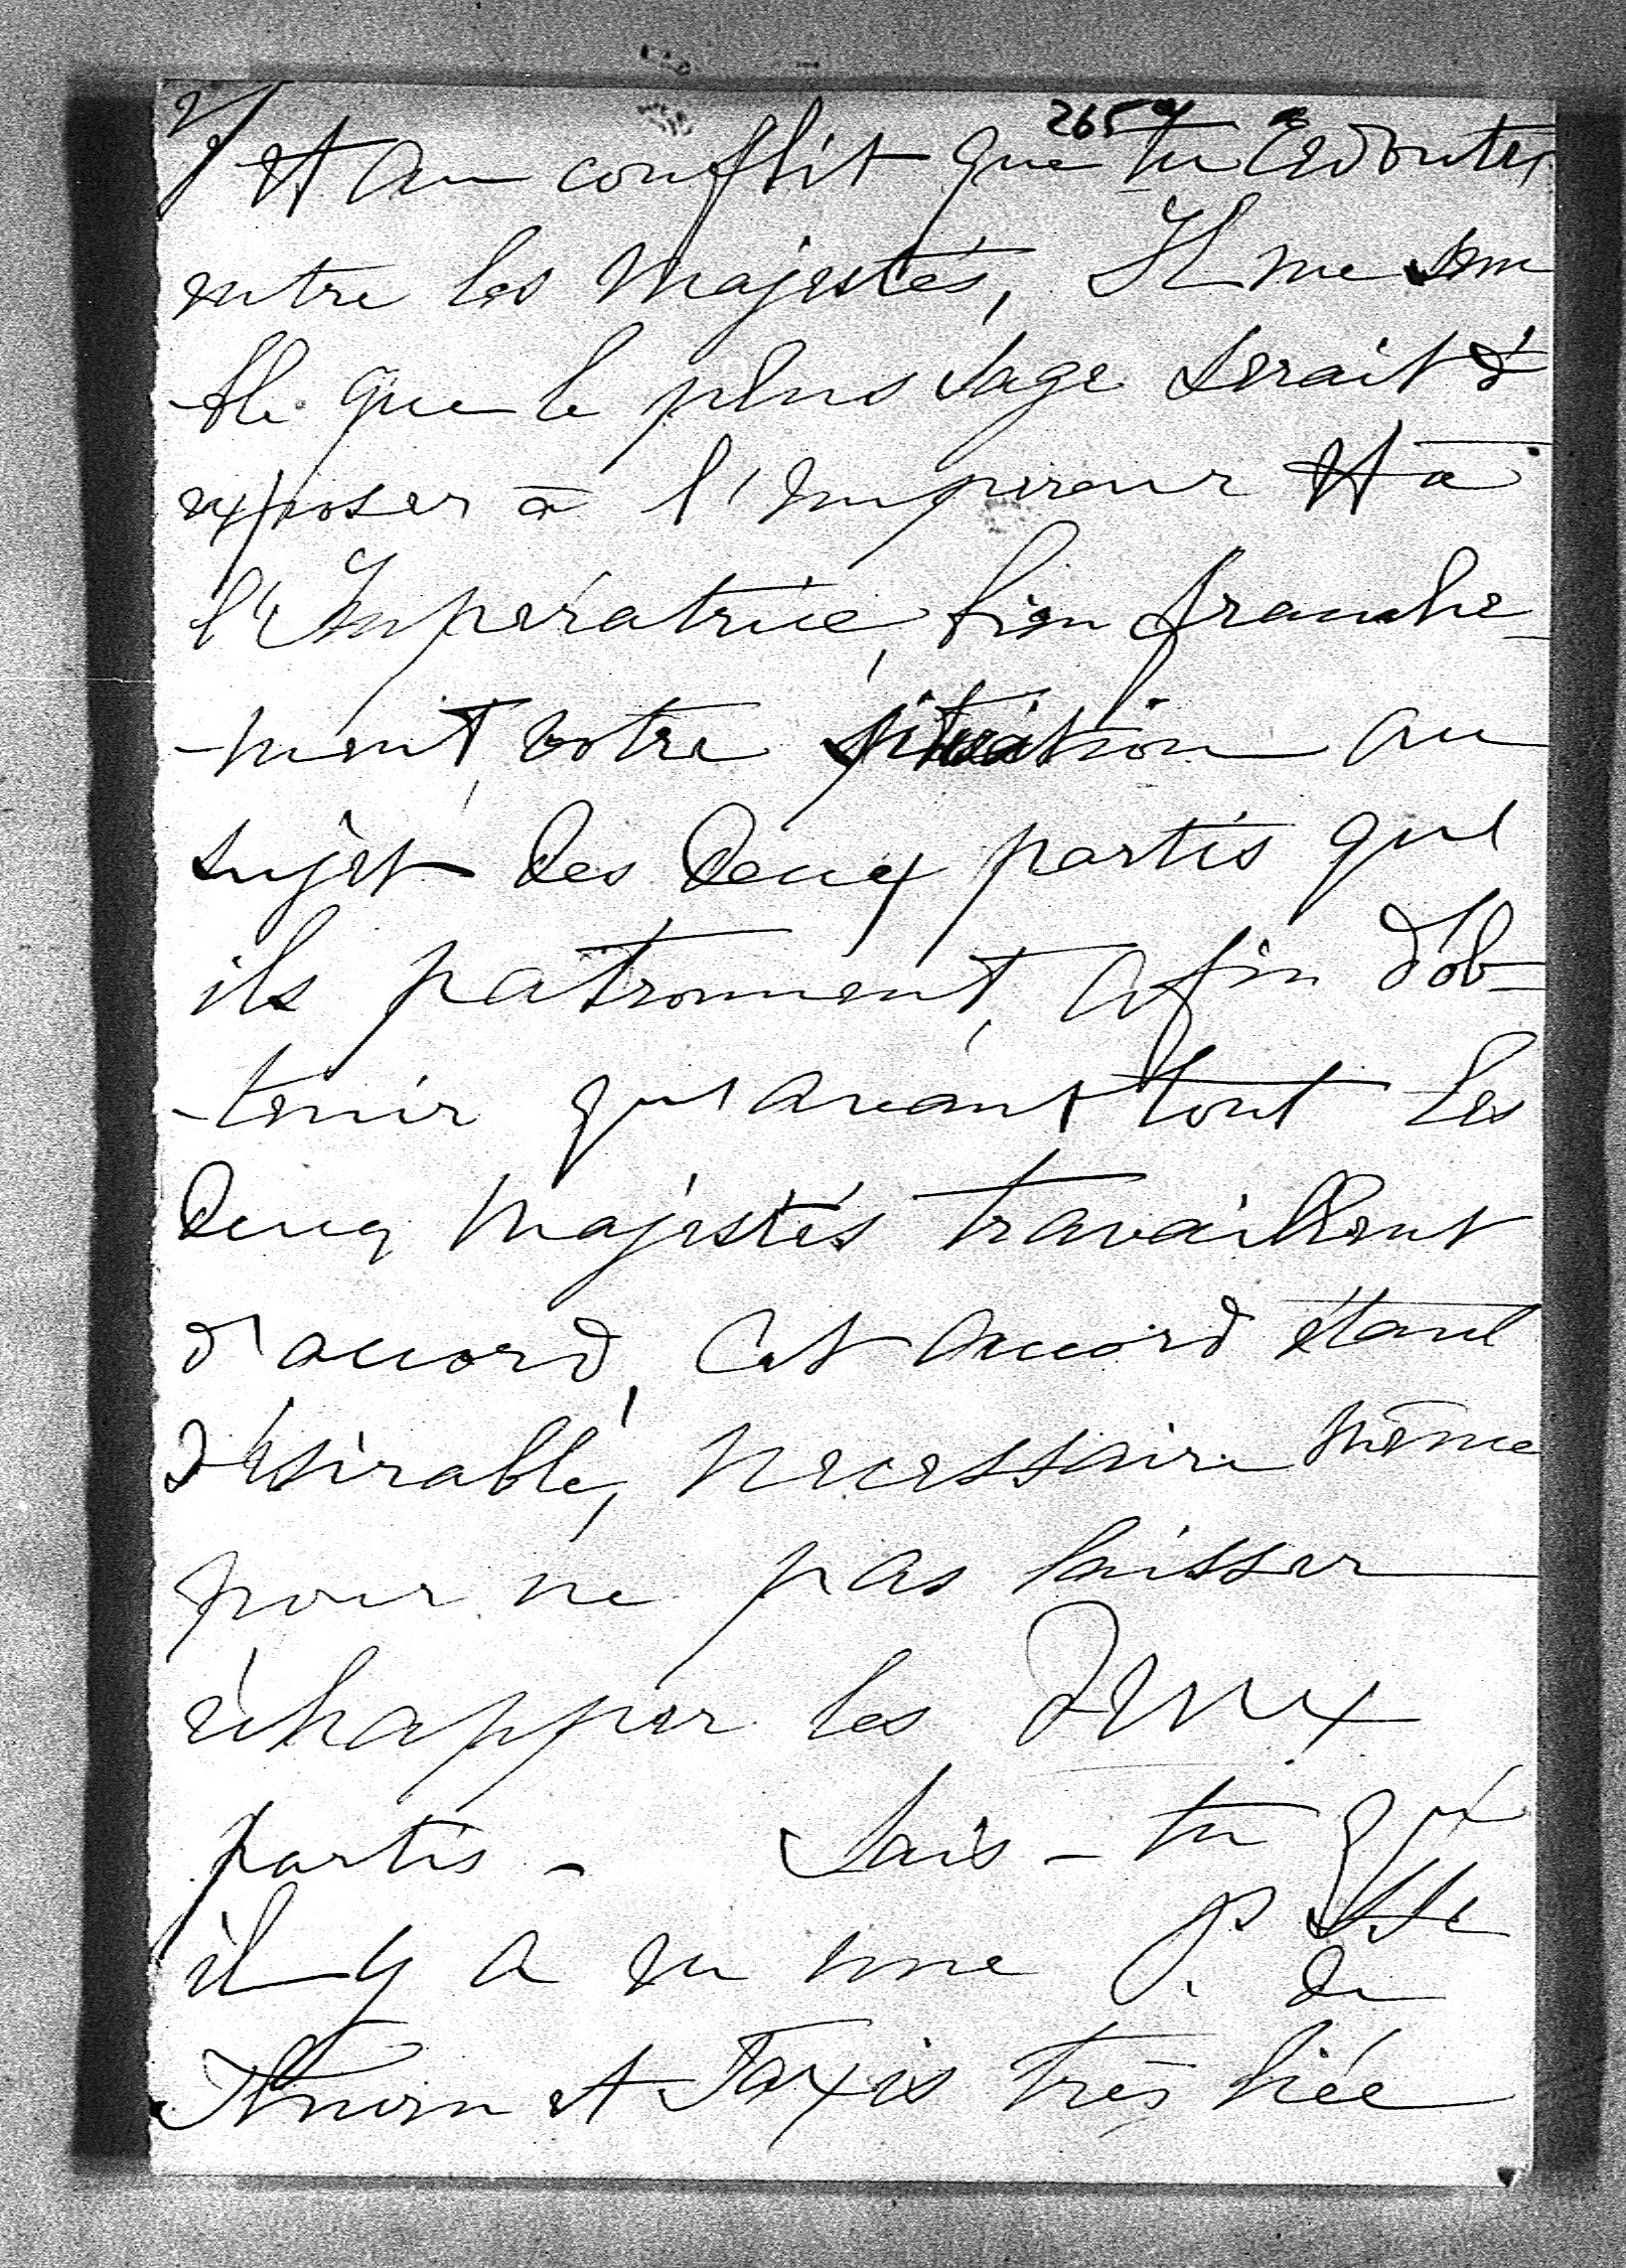 2/
2659
et au conflit que tu redoutes
entre les Majestés, Il me sem
-ble que le plus sage serait d'
exposer à l'Empereur et à
l'Impératrice, bien franche-
-ment, votre situation au
sujet des deux partis qu'
ils patronnent, afin d'ob-
-tenir qu'avant tout les
deux Majestés travaillent
d'accord, cet accord étant
désirable, necessaire même
pour ne pas laisser
échapper les deux
partis - Sais-tu qu'
il y a eu une Psse de
Thurn et Taxis très liée